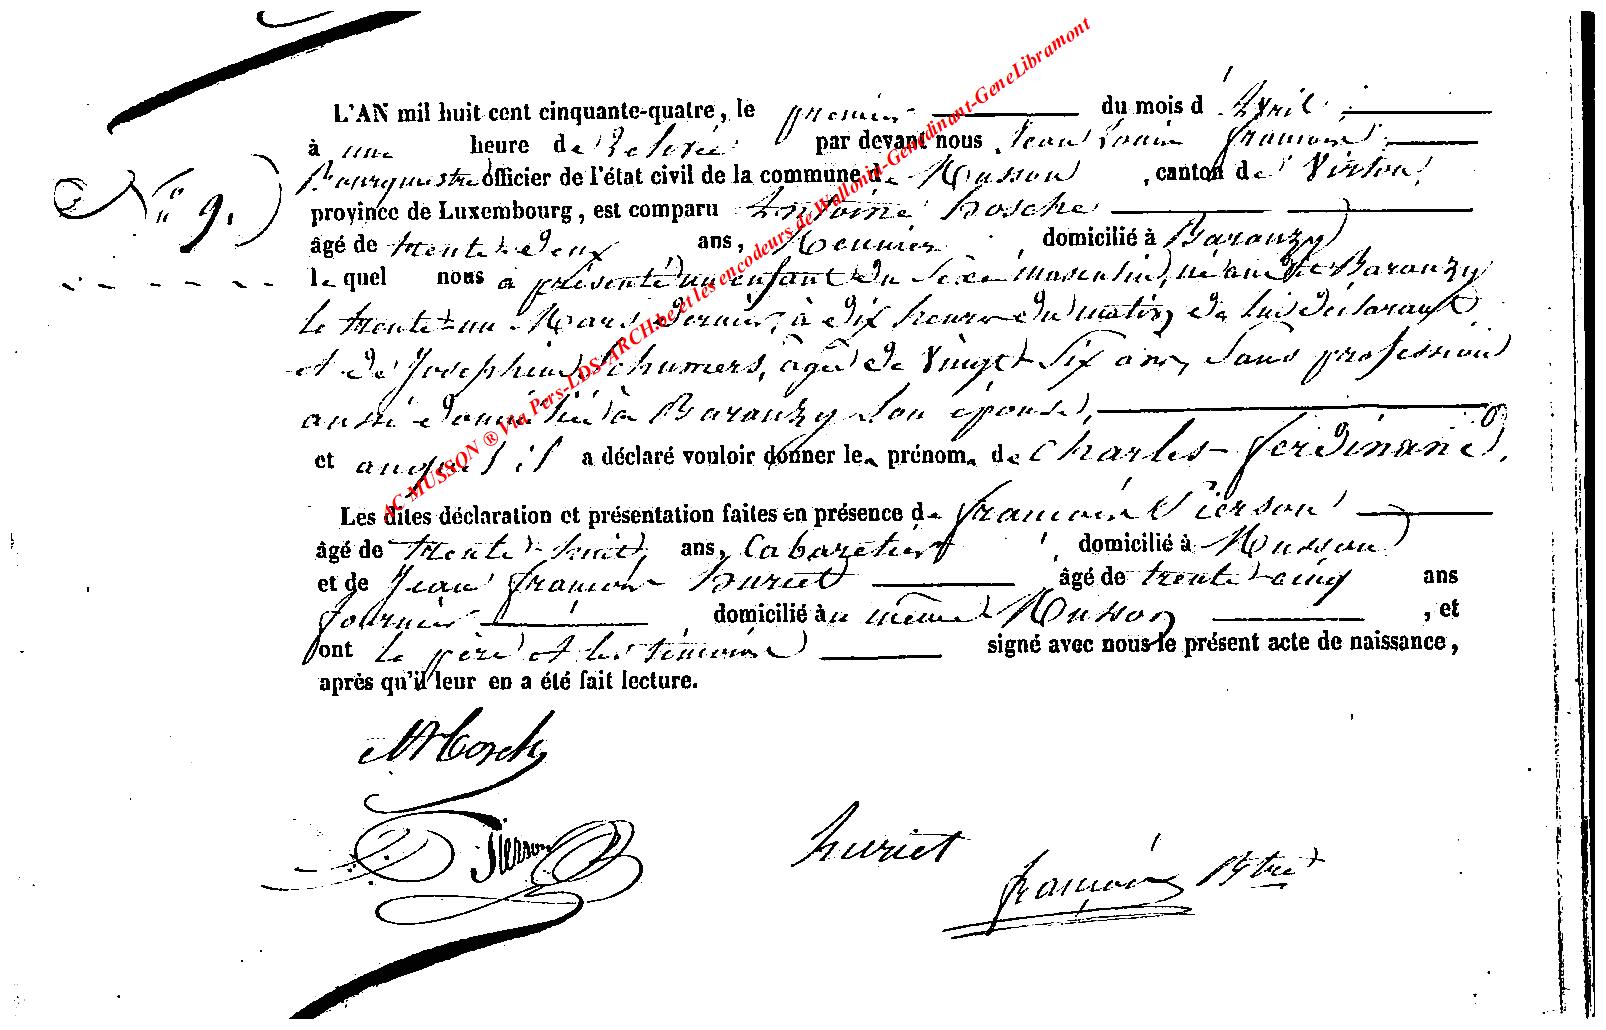 L'AN mil huit cent cinquante-quatre, le premier du mois d'Avril
à une heure de Relevée par devant nous Jean Louis François
Bourgmestre officier de l'état civil de la commune de Musson, canton de Virton,
N° 9.
province de Luxembourg, est comparu Antoine Hosche
âgé de trente-deux ans, Meunier, domicilié à Baranzy
lequel nous a présenté un enfant du sexe masculin, né au dit Baranzy
le trente-un Mars dernier, à dix heures du matin, de lui déclarant
et de Joséphine Schumers, âgée de Vingt-Six ans, Sans profession
aussi domiciliée à Baranzy son épouse,
et auquel il a déclaré vouloir donner les prénoms de Charles-Ferdinand.
Les dites déclaration et présentation faites en présence de François Pierson
âgé de trente-huit ans, Cabaretier, domicilié à Musson
et de Jean François Huriet âgé de trente-cinq ans
journalier domicilié au même Musson, et
ont le père et les témoins signé avec nous le présent acte de naissance,
après qu'il leur en a été fait lecture.
Pierson
huriet
françois Bgtre
AC MUSSON ® Via Pers-LDS-ARCH.be et les encodeurs de Wallonia-Genedinant-GeneLibramont